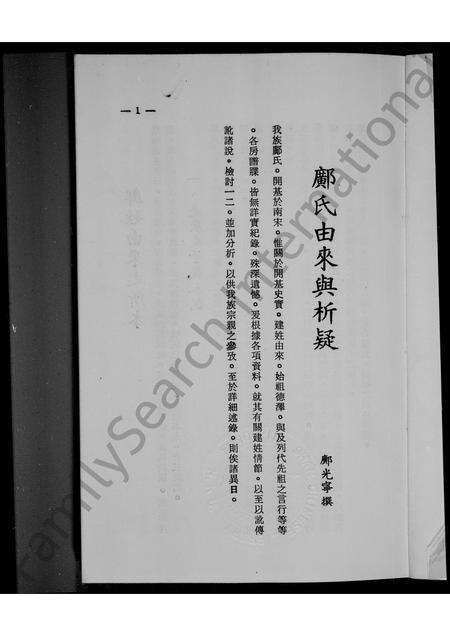 鄺氏由來與析疑
鄺光寧撰
我族鄺氏。開基於南宋。惟關於開基史實。建姓由來。始祖德澤。與及列代先祖之言行等等
。各房譜牒。皆無詳實紀錄。殊深遺憾。爰根據各項資料。就其有關建姓情節。以至以訛傳
訛諸說。檢討一二。並加分析。以供我族宗親之參攷。至於詳細述錄。則俟諸異日。
— 1 —
FamilySearch International